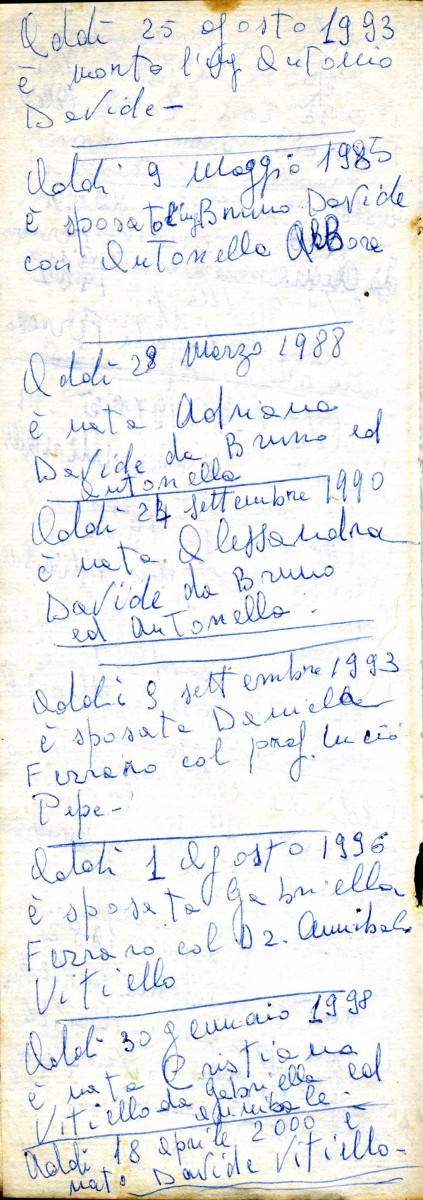 Addì 25 agosto 1993
è morto l'ing Antonio
Davide-
Addì 9 Maggio 1985
è sposato l'ing Bruno Davide
con Antonella
Addì 28 Marzo 1988
è nata Adriana
Davide da Bruno ed
Antonella
Addì 24 settembre 1990
è nata Alessandra
Davide da Bruno
ed Antonella.
Addì 9 settembre 1993
è sposata Daniela
Ferraro col prof. Lucio
Pepe-
Addì 1 Agosto 1996
è sposata Gabriella
Ferraro col Dr. Annibale
Vitiello
Addì 30 gennaio 1998
è nata Cristiana
Vitiello da Gabriella ed
Annibale.
Addì 18 Aprile 2000 è
nato Davide Vitiello-